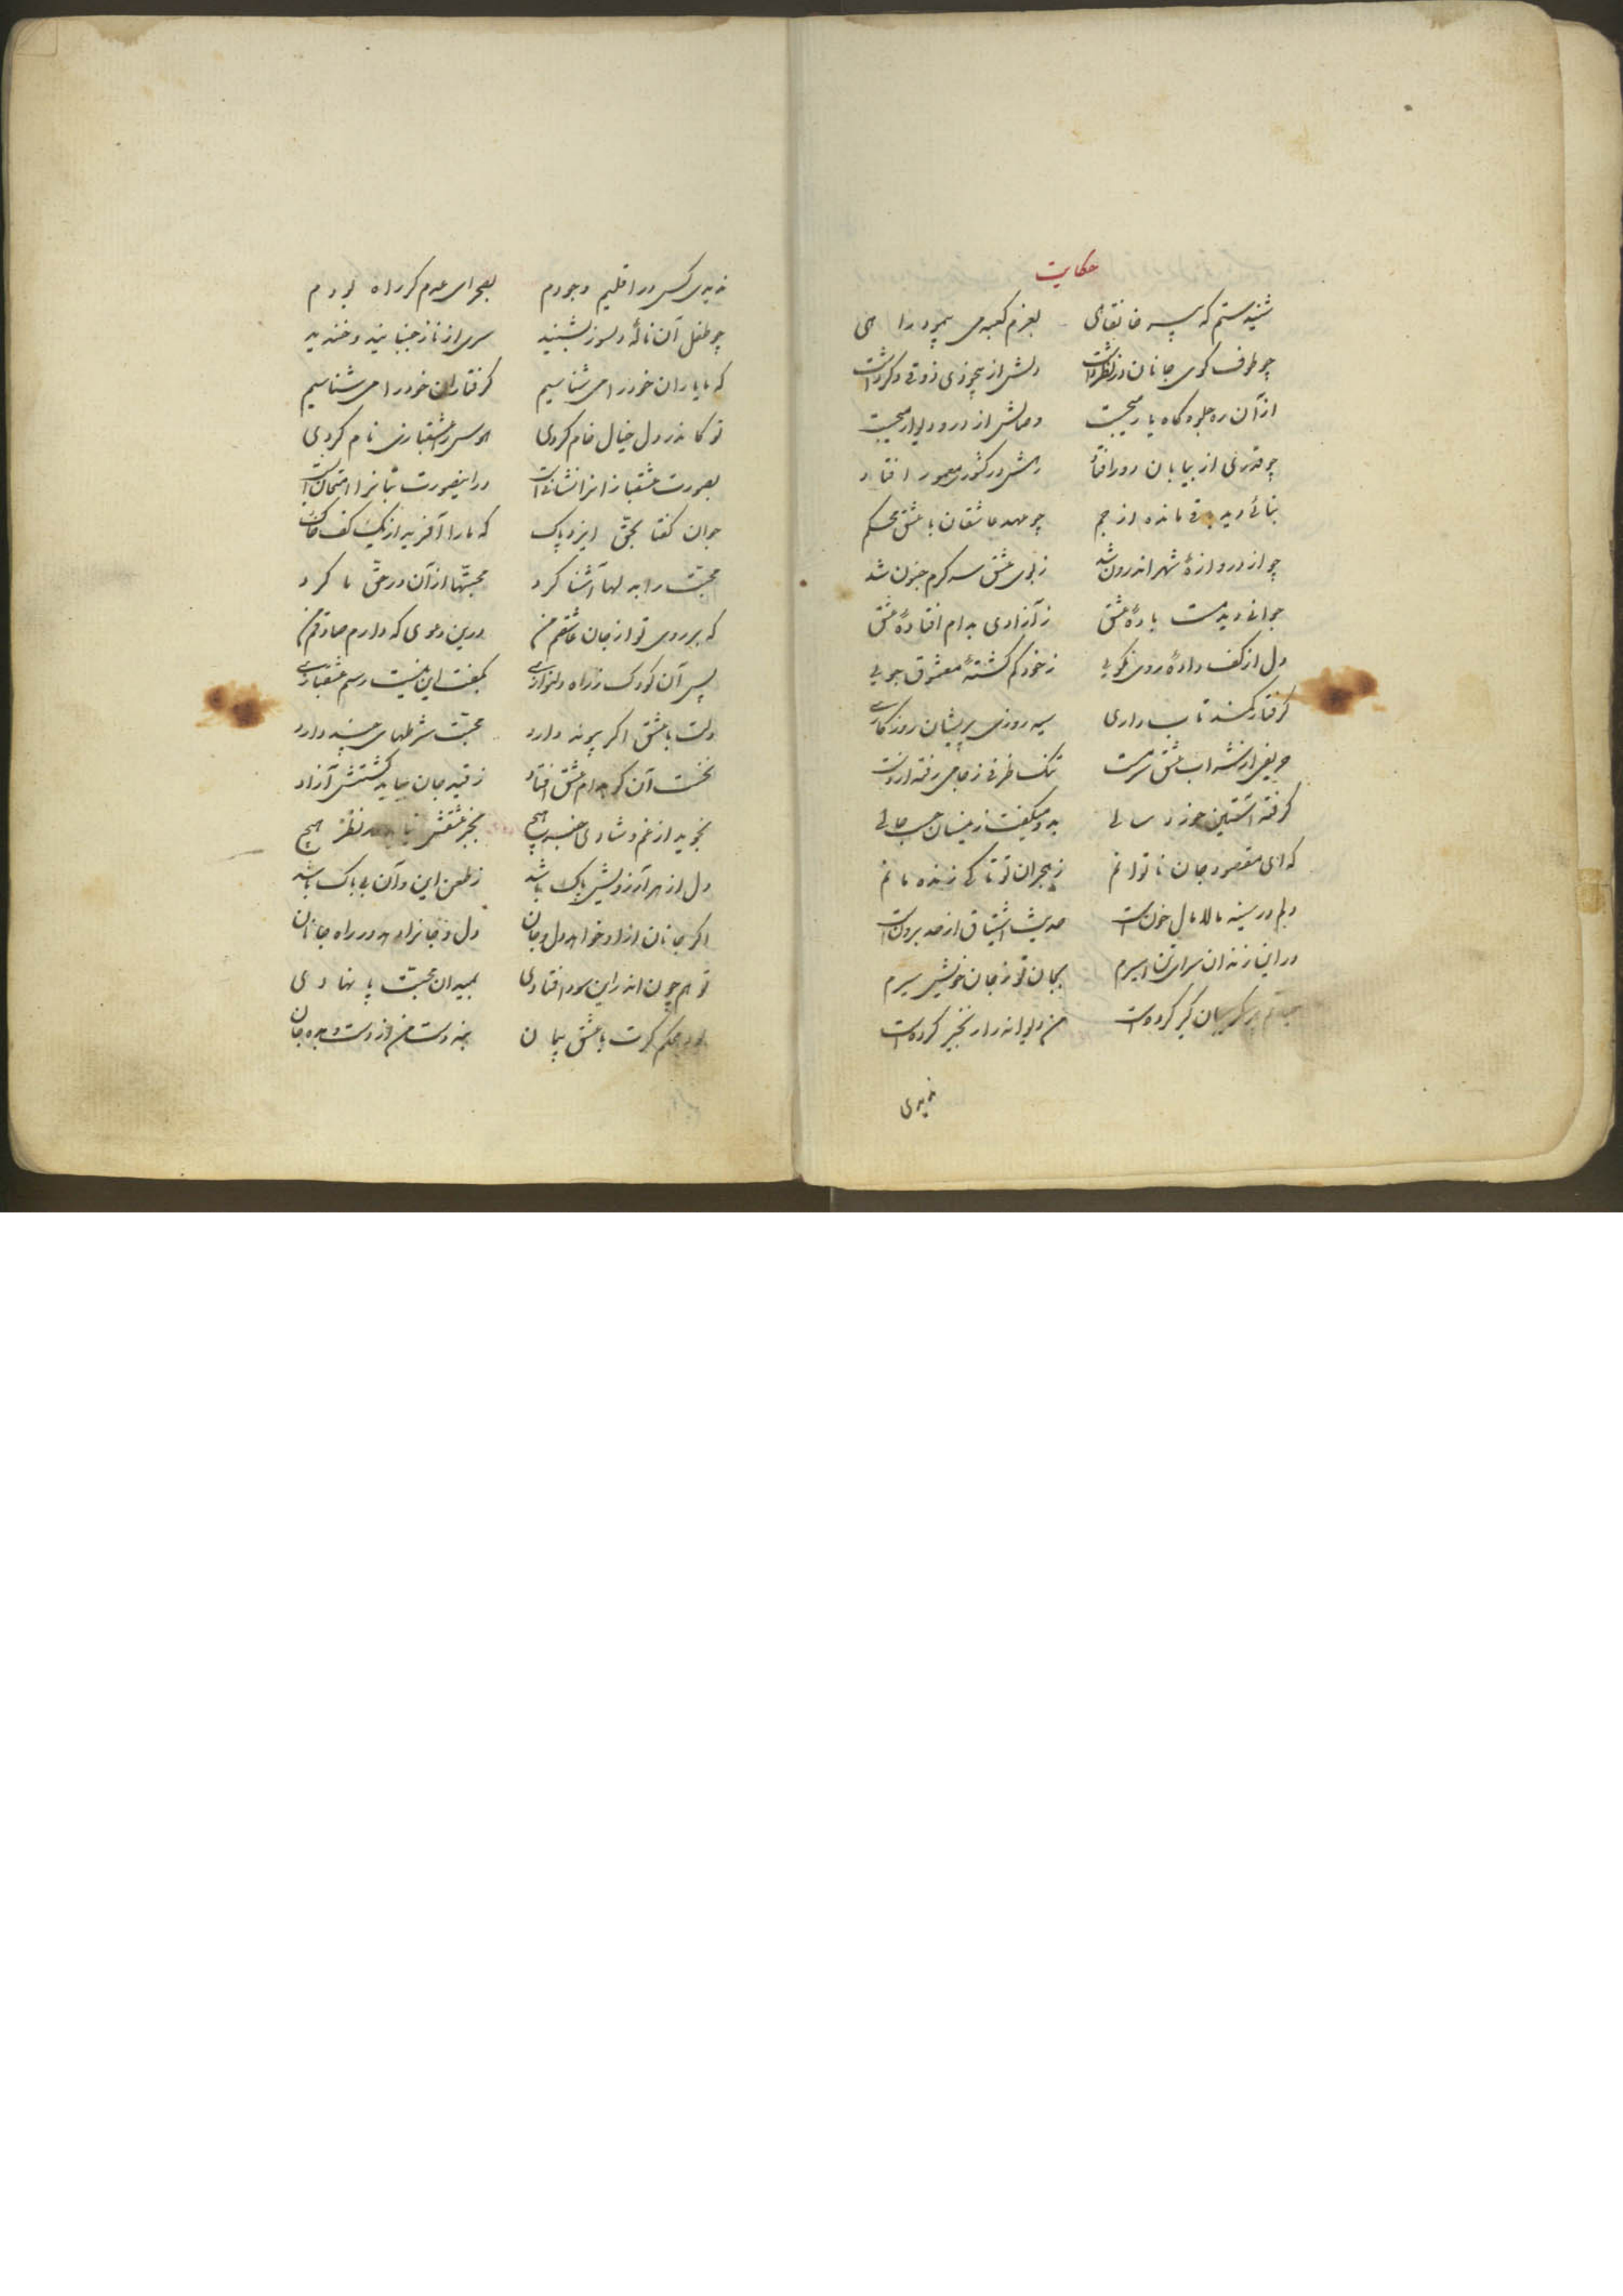 حکایت
شنیدستم که پیر خانقاهی بعزم کعبه می پیمود راهی
چو طرف کوی جانان در نظر داشت دلش از بیخودی ذوقی دگر داشت
از آن ره جلوه کاه یار میجست وصالش از در و دیوار میجست
چو قدری از بیابان دور افتاد رهش در کشوری معمور افتاد
بنائی دید باقی مانده از جم چو عهد عاشقان با عشق محکم
چو از دروازهٔ شهر اندرون شد ز بوی عشق سر کرم جنون شد
جوانی دید مست بادهٔ عشق ز آزادی بدام افتادهٔ عشق
دل از کف دادهٔ روی نکویی ز خود کم کشتهٔ معشوق جویی
کرفتار کمند تابداری سیه روزی پریشان روزکاری
حریفی از شراب عشق سرمست تنک ظرفی ز جامی رفته از دست
کرفته آستین خورد سالی بدو میکفت زینسان حسب حالی
که ای مقصود جان ناتوانم ز هجران تو تا کی زنده مانم
دلم در سینه مالامال خونست حدیث اشتیاق از حد برونست
در این زندان سرای تن اسیرم بجان تو ز جان خویش سیرم
کریبان کیر کرده است من دیوانه را زنجیر کرده است
ندیدی
ندیدی کس در اقلیم وجودم بصحرای عدم کر راه بودم
چو طفل آن نالهٔ دلسوز بشنید سری از ناز جنبانید و خندید
که ما یاران خود را می شناسیم کرفتاران خود را می شناسیم
تو کاندر دل خیال خام کردی هوس را عشقبازی نام کردی
بصورت عشقبازانرا نشانی است در اینصورت بتانرا امتحانی است
جوان کفتا بحق ایزد پاک که ما را آفرید از یک کف خاک
محبت را بدلها آشنا کرد محبتها از آن در حق ما کرد
که بر روی تو از جان عاشقم من درین دعوی که دارم صادقم من
پس آن کودک ز راه دلنوازی بکفت این نیست رسم عشقبازی
دلت با عشق اکر پیوند دارد محبت شرطهای چند دارد
نخست آن کو بدام عشق افتاد ز قید جان بباید کشتنش آزاد
نجوید از غم و شادی خبر هیچ بجز عشقش نیاید در نظر هیچ
دل از هر آرزویش پاک باشد ز طعن این و آن بی باک باشد
اکر جانان ازو خواهد دل و جان دل و جانرا دهد در راه جانان
تو هم چون اندر این سودا فتادی بمیدان محبت پا نهادی
بود محکم کرت با عشق پیمان بنه دست من از دست و بده جان